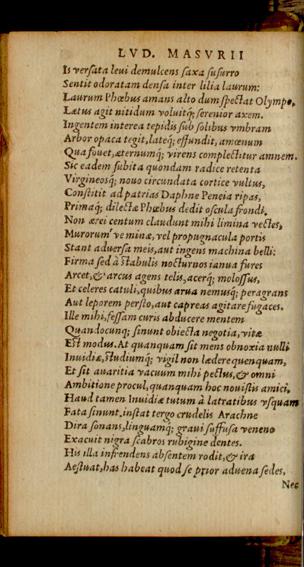 LVD. MASVRII
Is versata leui demulcens saxa susurro
Sentit odoratam densa inter lilia laurum:
Laurum Phœbus amans alto dum spectat Olympo,
Lætus agit nitidum voluitq́; serenior axem.
Ingentem interea tepidis sub solibus vmbram
Arbor opaca tegit, lateq́; effundit, amœnum
Qua fouet, æternumq́; virens complectitur amnem.
Sic eadem subita quondam radice retenta
Virgineosq́; nouo circundata cortice vultus,
Constitit ad patrias Daphne Peneia ripas,
Primaq́; dilectæ Phœbus dedit oscula frondi.
Non ærei centum claudunt mihi limina vectes,
Murorum' ve minæ, vel propugnacula portis
Stant aduersa meis, aut ingens machina belli:
Firma sed à stabulis nocturnos ianua fures
Arcet, & arcus agens telis, acerq́; molossus,
Et celeres catuli, quibus arua nemusq́; peragrans
Aut leporem persto, aut capreas agitare fugaces.
Ille mihi, fessam curis abducere mentem
Quandocunq; sinunt obiecta negotia, vitæ
Est modus. At quanquam sit mens obnoxia nulli
Inuidiæ, studiumq́; vigil non lædere quenquam,
Et sit auaritia vacuum mihi pectus, & omni
Ambitione procul, quanquam hoc nouistis amici,
Haud tamen Inuidiæ tutum à latratibus vsquam
Fata sinunt, instat tergo crudelis Arachne
Dira sonans, linguamq́; graui suffusa veneno
Exacuit nigra scabros rubigine dentes.
His illa infrendens absentem rodit, & ira
Aestuat, has habeat quod se prior aduena sedes,
Nec